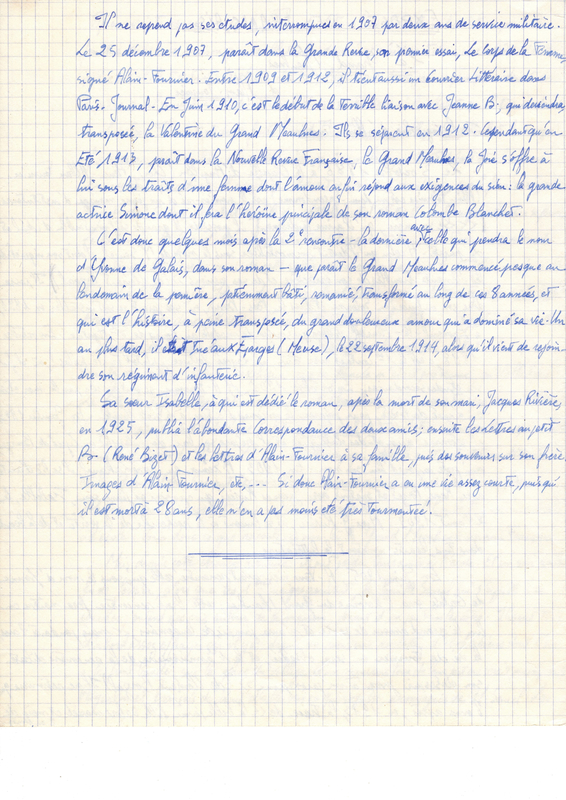 Il ne reprend pas ses études, interrompues en 1907 par deux ans de service militaire.
Le 25 décembre 1907, paraît dans la Grande Revue, son premier essai, Le Corps de la Femme,
signé Alain-Fournier. Entre 1909 et 1912, il tient aussi un Courrier Littéraire dans
Paris-Journal. En Juin 1910, c'est le début de la terrible liaison avec Jeanne B., qui deviendra,
transposée, la Valentine du Grand Meaulnes. Ils se séparent en 1912. Cependant qu'en
Eté 1913, paraît dans la Nouvelle Revue Française, le Grand Meaulnes, la Joie s'offre à
lui sous les traits d'une femme dont l'amour enfin répond aux exigences du sien : la grande
actrice Simone dont il fera l'héroïne principale de son roman Colombe Blanchet.
C'est donc quelques mois après la 2e rencontre - la dernière avec celle qui prendra le nom
d'Yvonne de Galais, dans son roman - que paraît le Grand Meaulnes commencé presque au
lendemain de la première, patiemment bâti, remanié, transformé au long de ces 8 années, et
qui est l'histoire, à peine transposée, du grand douloureux amour qui a dominé sa vie. Un
an plus tard, il est Tué aux Eparges (Meuse), le 22 septembre 1914, alors qu'il vient de rejoin-
dre son régiment d'infanterie.
Sa sœur Isabelle, à qui est dédié le roman, après la mort de son mari, Jacques Rivière,
en 1925, publia l'abondante Correspondance des deux amis ; ensuite les Lettres au petit
B. (René Bizet) et les lettres d'Alain-Fournier à sa famille, puis des souvenirs sur son frère
Images d'Alain-Fournier, etc, --- Si donc Alain-Fournier a eu une vie assez courte, puisqu'
il est mort à 28 ans, elle n'en a pas moins été très Tourmentée.